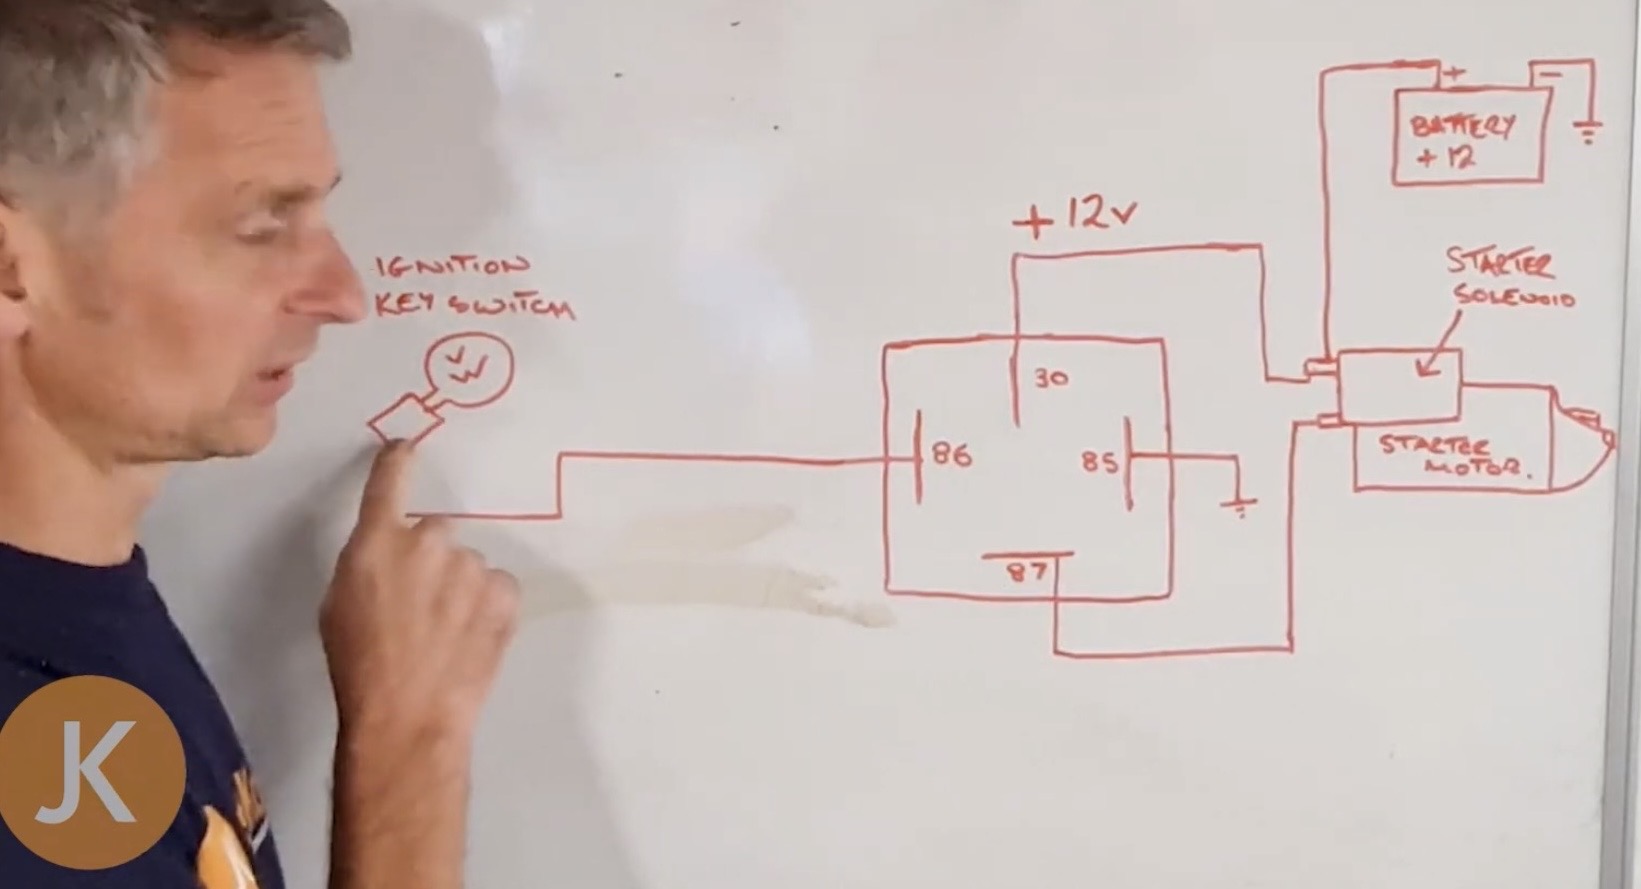 IGNITION
KEY SWITCH
VW
+ 12V
30
86
85
87
+ -
BATTERY
+ 12
STARTER
SOLENOID
STARTER
MOTOR.
JK